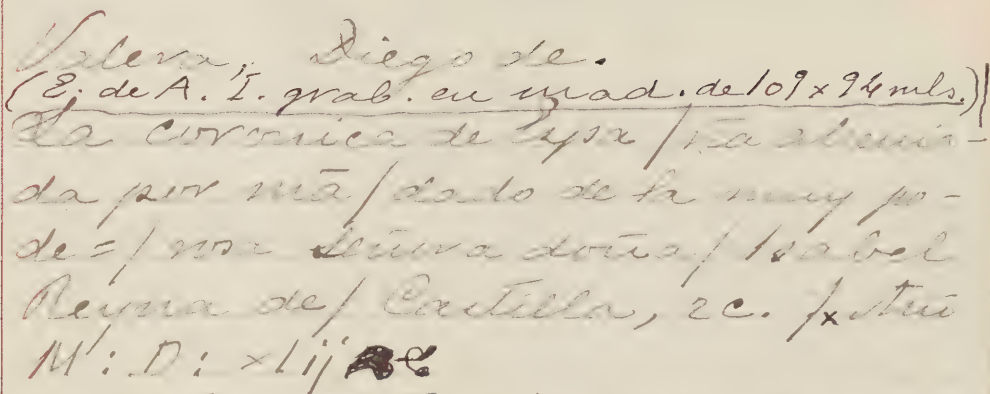 Valera, Diego de.
(E. de A. I. grab. en mad. de 109 x 94 mls.)
La coronica de Espa / ña abrevia-
da por mã / dado de la muy po-
de= / rosa Señora doña / Isabel
Reyna de / Castilla, zc. /x Año
M : D : xlij